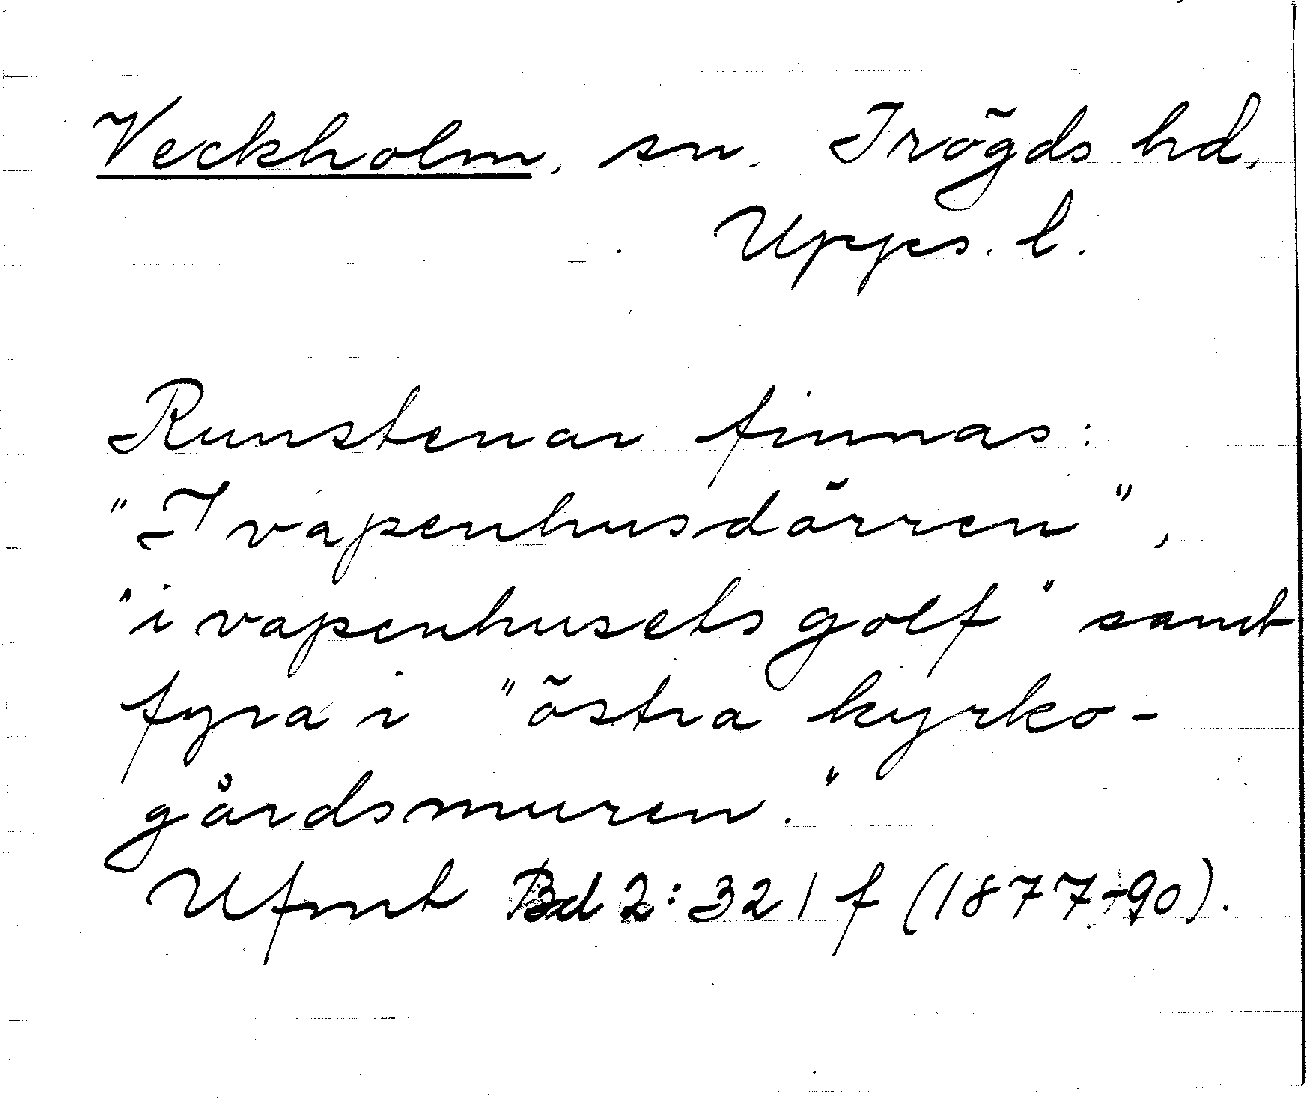 Veckholm, sn. Trögds hd,
Upps. l.
Runstenar finnas:
"I vapenhusdörren",
"i vapenhusets golf" samt
fyra i "östra kyrko-
gårdsmuren."
Ufmt Bd 2: 321 f (1877-90).